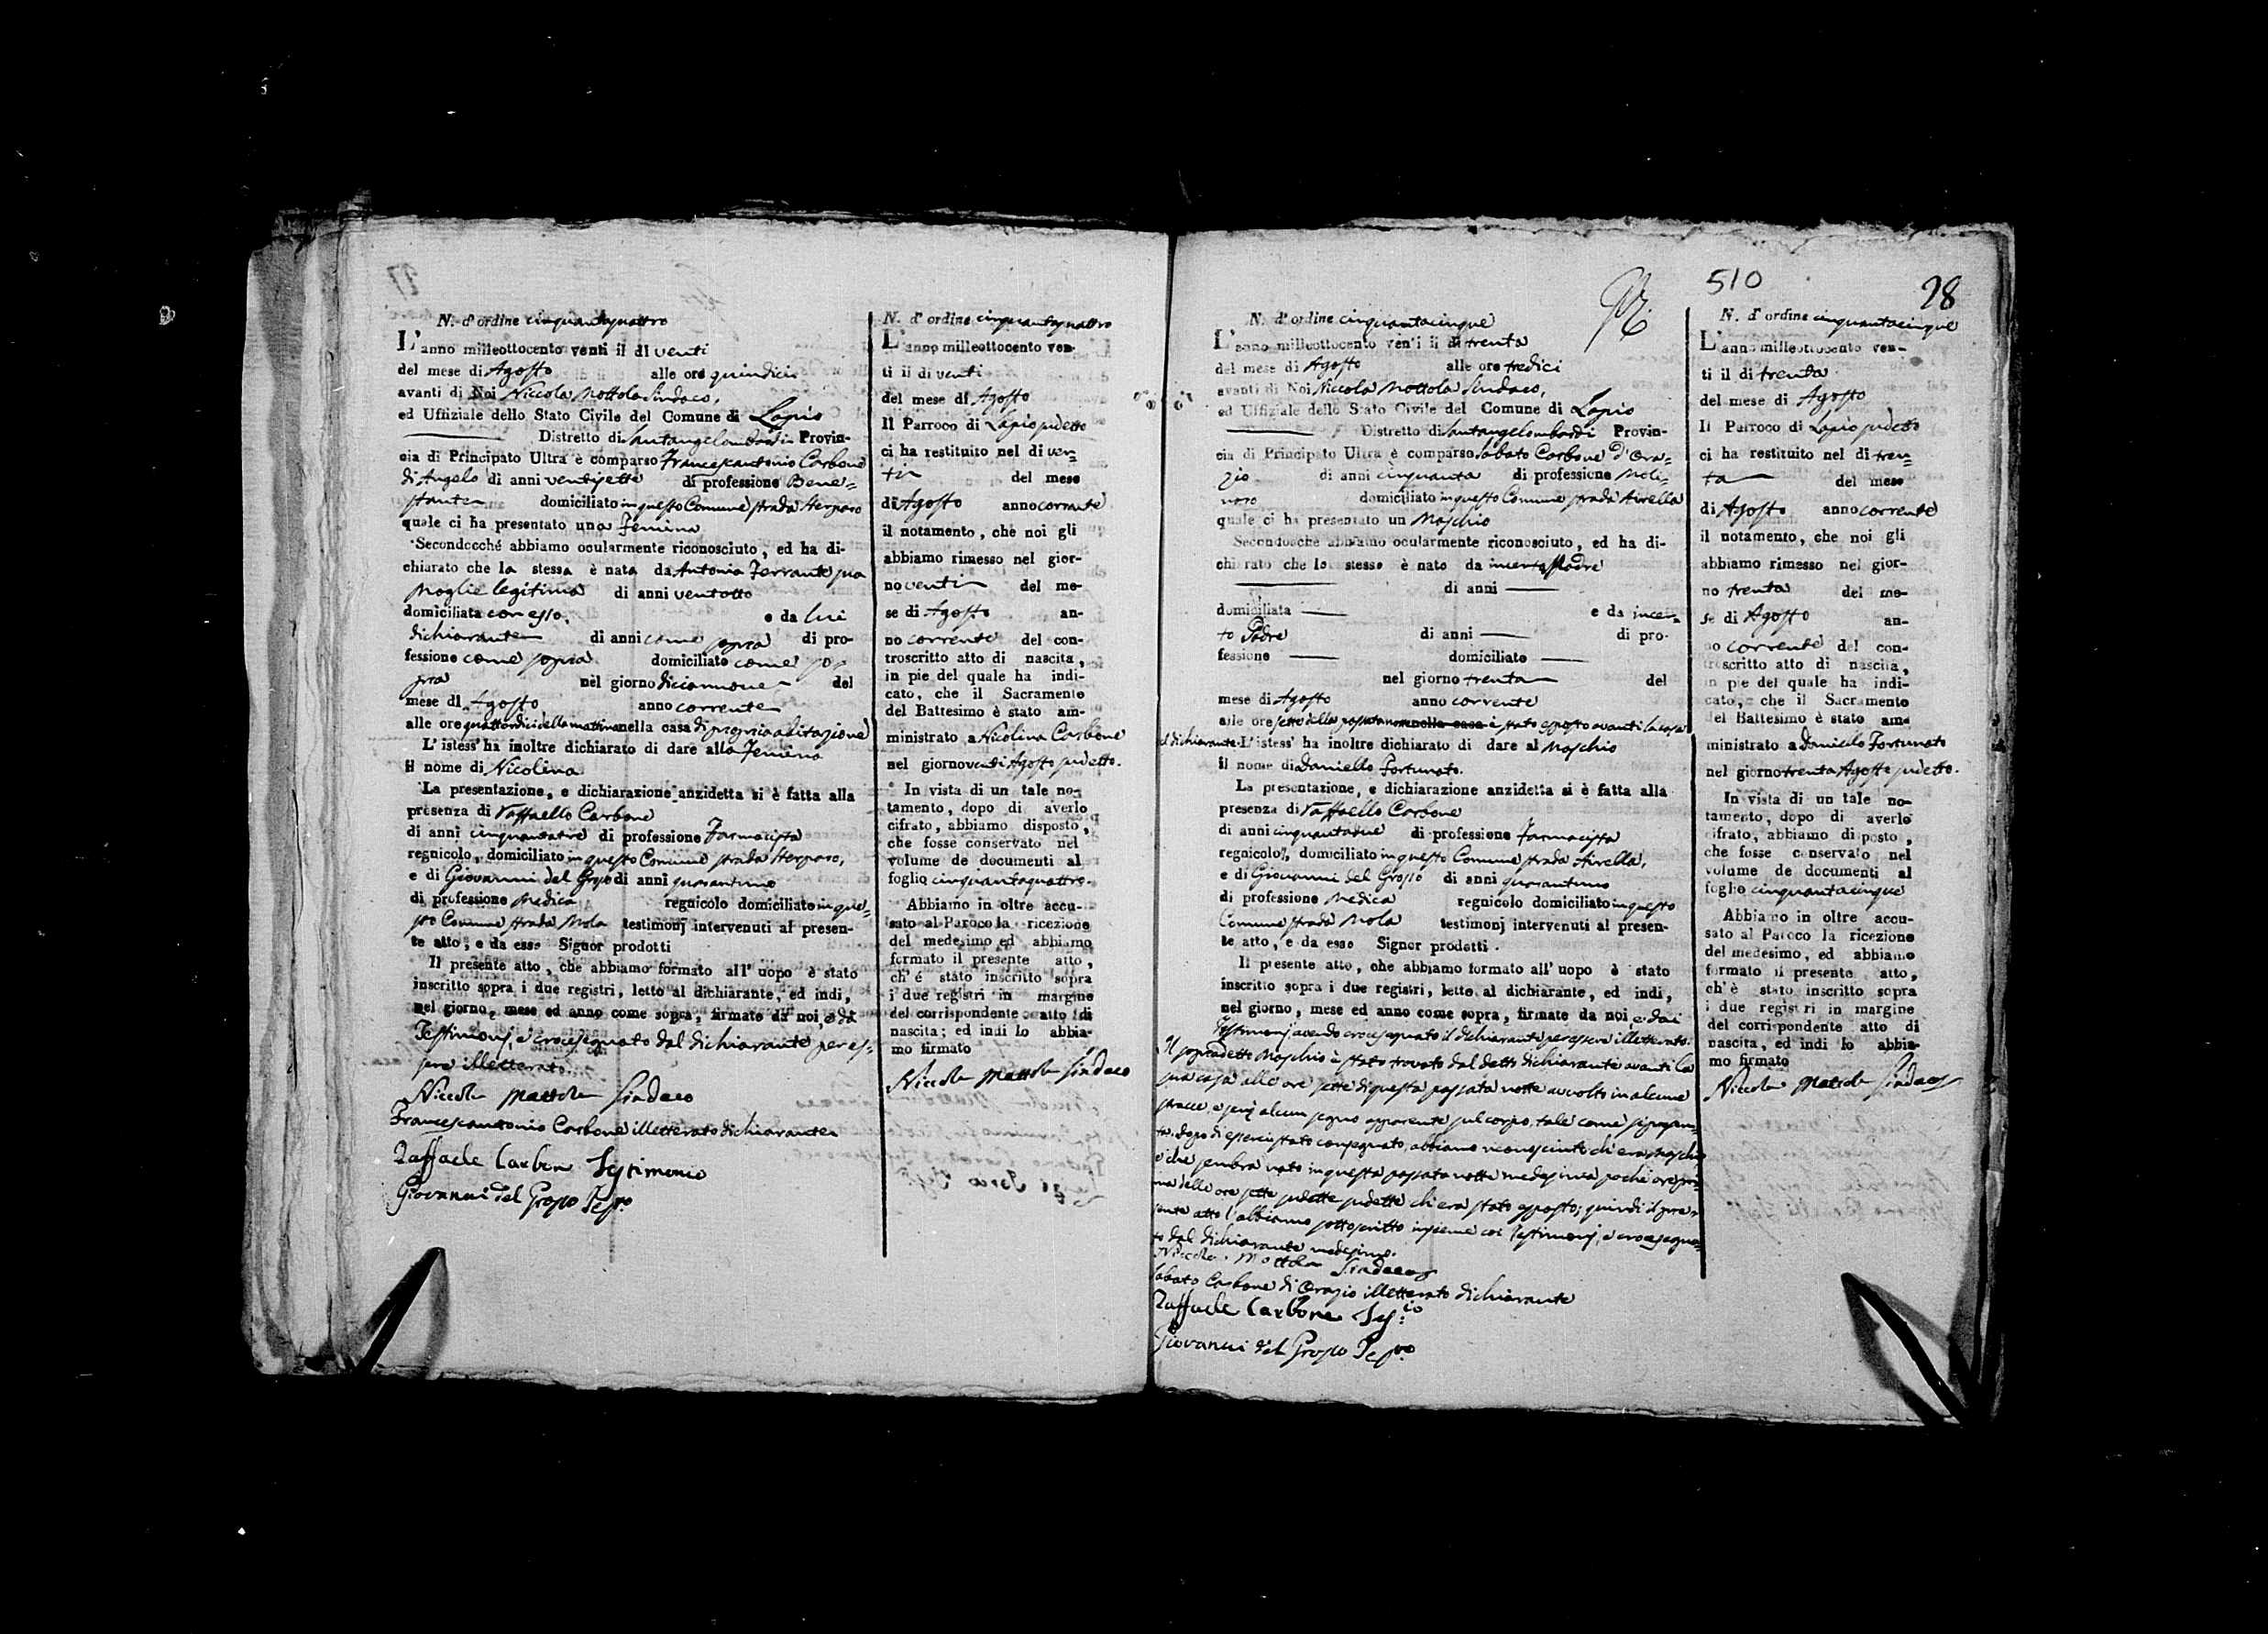 N. d' ordine cinquantaquattro
L' anno milleottocento venti il di venti
del mese di Agosto alle ore quindici
avanti di Noi Niccola Mottola Sindaco,
ed Uffiziale dello Stato Civile del Comune di Lapio
Distretto di Santangelolombardi Provin-
cia di Principato Ultra è comparso Francescantonio Carbone
di Angelo di anni ventisette di professione Bene=
stante domiciliato in questo Comune strada
quale ci ha presentato una Femina
Secondocché abbiamo ocularmente riconosciuto, ed ha di-
chiarato che la stessa è nata da Antonia Ferrante sua
moglie legitima di anni ventotto
domiciliata con esso. e da lui
dichiarante di anni come sopra di pro-
fessione come sopra domiciliato come so=
pra nel giorno diciannove del
mese di Agosto anno corrente
alle ore quattordici della mattina nella casa di propria abitazione
L' istess' ha inoltre dichiarato di dare alla Femina
il nome di Nicolina
La presentazione, e dichiarazione anzidetta si è fatta alla
presenza di Raffaello Carbone
di anni cinquantatre di professione Farmacista
regnicolo, domiciliato in questo Comune strada
e di Giovanni del Grosso di anni quarantuno
di professione Medica regnicolo domiciliato in que=
sto Comune strada Mola testimonj intervenuti al presen-
te atto, e da esso Signor prodotti
Il presente atto, che abbiamo formato all' uopo è stato
inscritto sopra i due registri, letto al dichiarante, ed indi,
nel giorno, mese ed anno come sopra, firmato da noi, e da
Testimonj, e crocesegnato dal dichiarante per es=
sere illetterato.
Niccola Mottola Sindaco
Francescantonio Carbone illetterato dichiarante
Raffaele Carbone Testimonio
Giovanni del Grosso Test.o
N. d' ordine cinquantaquattro
L' anno milleottocento ven-
ti il di venti
del mese di Agosto
Il Parroco di Lapio sudetto
ci ha restituito nel di ven=
ti del mese
di Agosto anno corrente
il notamento, che noi gli
abbiamo rimesso nel gior-
no venti del me-
se di Agosto an-
no corrente del con-
troscritto atto di nascita,
in pie del quale ha indi-
cato, che il Sacramento
del Battesimo è stato am-
ministrato a Nicolina Carbone
nel giorno venti Agosto sudetto.
In vista di un tale no-
tamento, dopo di averlo
cifrato, abbiamo disposto,
che fosse conservato nel
volume de documenti al
foglio cinquantaquattro.
Abbiamo in oltre accu-
sato al Paroco la ricezione
del medesimo ed abbiamo
formato il presente atto,
ch' é stato inscritto sopra
i due registri in margine
del corrispondente atto di
nascita; ed indi lo abbia-
mo firmato
Niccola Mottola Sindaco
510
28
N. d' ordine cinquantacinque
L' anno milleottocento venti il di trenta
del mese di Agosto alle ore tredici
avanti di Noi Niccola Mottola Sindaco,
ed Uffiziale dello Stato Civile del Comune di Lapio
Distretto di Santangelolombardi Provin-
cia di Principato Ultra è comparso Sabato Carbone d'Ora=
zio di anni cinquanta di professione Moli=
naro domiciliato in questo Comune strada Airella
quale ci ha presentato un Maschio
Secondoschè abbiamo ocularmente riconosciuto, ed ha di-
chiarato che lo stesso è nato da incerta Madre
di anni
domiciliata e da incer=
to Padre di anni di pro-
fessione domiciliato
nel giorno trenta del
mese di Agosto anno corrente
alle ore sette della passata notte nella casa è stato esposto avanti la casa
del dichiarante. L' istess' ha inoltre dichiarato di dare al Maschio
il nome di Daniello Fortunato.
La presentazione, e dichiarazione anzidetta si è fatta alla
presenza di Raffaello Carbone
di anni cinquantadue di professione Farmacista
regnicolo, domiciliato in questo Comune strada Airella,
e di Giovanni del Grosso di anni quarantuno
di professione Medica regnicolo domiciliato in questo
Comune strada Mola testimonj intervenuti al presen-
te atto, e da esso Signor prodotti.
Il presente atto, che abbiamo formato all' uopo è stato
inscritto sopra i due registri, letto al dichiarante, ed indi,
nel giorno, mese ed anno come sopra, firmate da noi, e dai
Testimonj avendo crocesegnato il dichiarante per essere illetterato.
Il sopradetto Maschio è stato trovato dal detto dichiarante avanti la
sua casa alle ore sette di questa passata notte avvolto in alcune
stracce, e senz'alcun segno apparente sul corpo, tale come
dopo di esserci stato consegnato abbiamo riconosciuto ch'era maschio
e che sembra nato in questa passata notte medesima poche ore pri=
ma delle ore sette sudette sudette ch'era stato esposto; quindi il pre=
sente atto l'abbiamo sottoscritto insieme coi Testimonj, e crocesegna=
to dal dichiarante medesimo.
Niccola Mottola Sindaco
Sabato Carbone di Orazio illetterato dichiarante
Raffaele Carbone Tes:io
Giovanni del Grosso Test.o
N. d' ordine cinquantacinque
L' anno milleottocento ven-
ti il di trenta
del mese di Agosto
Il Parroco di Lapio sudetto
ci ha restituito nel di tren=
ta del mese
di Agosto anno corrente
il notamento, che noi gli
abbiamo rimesso nel gior-
no trenta del me-
se di Agosto an-
no corrente del con-
troscritto atto di nascita,
in pie del quale ha indi-
cato, che il Sacramento
del Battesimo è stato am-
ministrato a Daniello Fortunato
nel giorno trenta Agosto sudetto.
In vista di un tale no-
tamento, dopo di averlo
cifrato, abbiamo disposto,
che fosse conservato nel
volume de documenti al
foglio cinquantacinque
Abbiamo in oltre accu-
sato al Paroco la ricezione
del medesimo, ed abbiamo
formato il presente atto,
ch' è stato inscritto sopra
i due registri in margine
del corrispondente atto di
nascita, ed indi lo abbia-
mo firmato
Niccola Mottola Sindaco